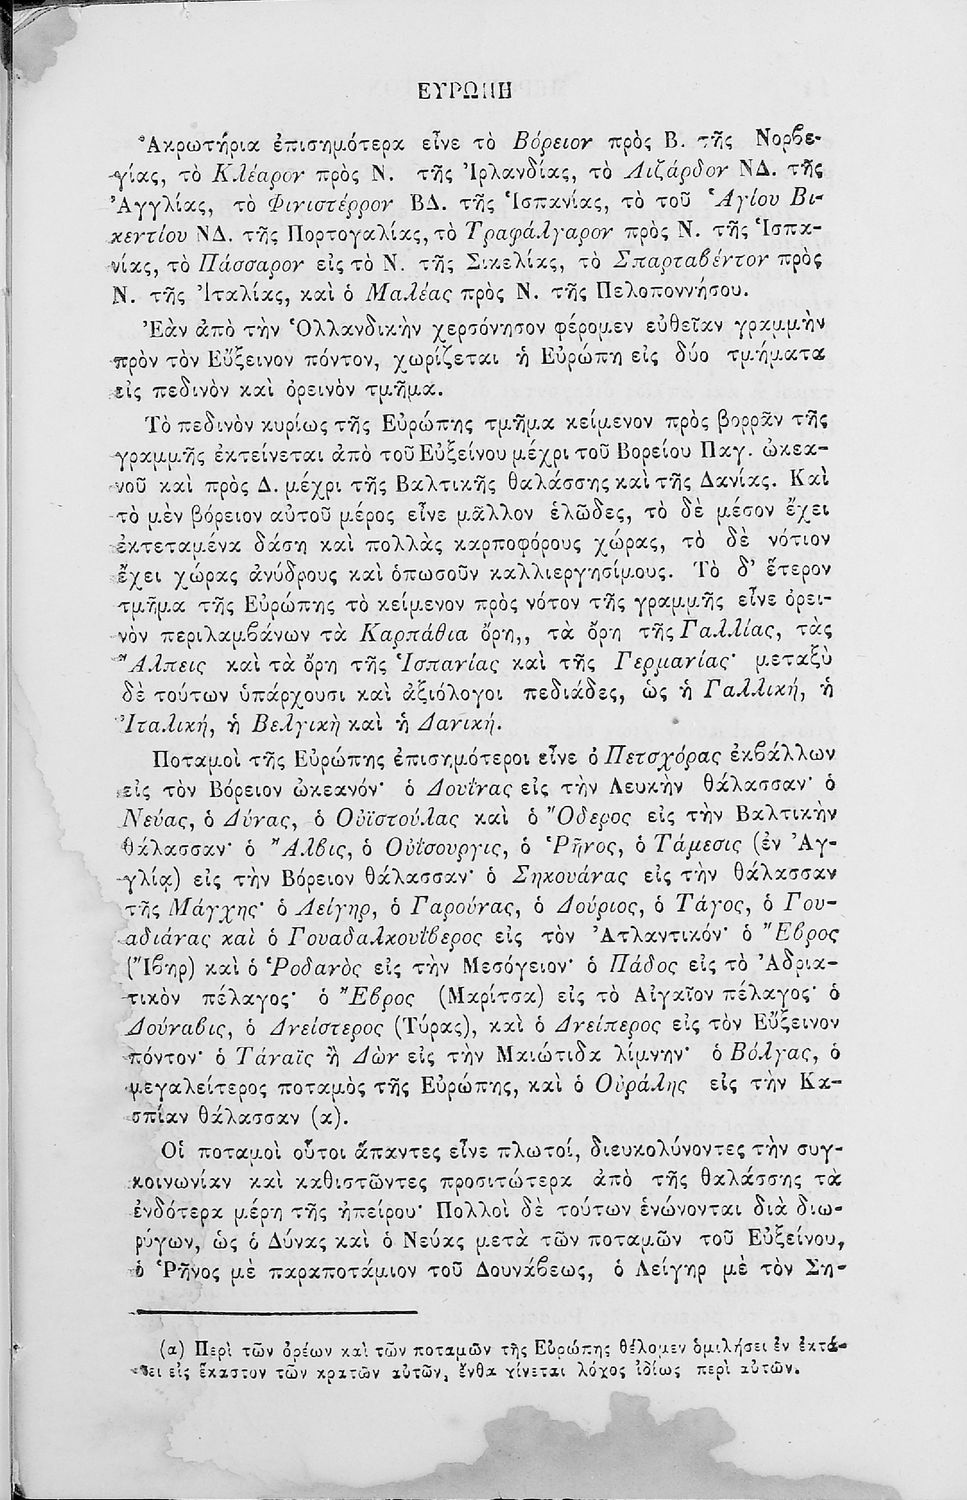 ΕΥΡΩΠΗ
Ἀκρωτήρια ἐπισημότερα εἶνε τὸ Βόρειον πρὸς Β. τῆς Νορβε-
γίας, τὸ Κλέαρον πρὸς Ν. τῆς Ἰρλανδίας, τὸ Λιζάρδον ΝΔ. τῆς
Ἀγγλίας, τὸ Φινιστέρρον ΒΔ. τῆς Ἱσπανίας, τὸ τοῦ Ἁγίου Βι-
κεντίου ΝΔ. τῆς Πορτογαλίας, τὸ Τραφάλγαρον πρὸς Ν. τῆς Ἱσπα-
νίας, τὸ Πάσσαρον εἰς τὸ Ν. τῆς Σικελίας, τὸ Σπαρταβέντον πρὸς
Ν. τῆς Ἰταλίας, καὶ ὁ Μαλέας πρὸς Ν. τῆς Πελοποννήσου.
Ἐὰν ἀπὸ τὴν Ὁλλανδικὴν χερσόνησον φέρομεν εὐθεῖαν γραμμὴν
πρὸν τὸν Εὔξεινον πόντον, χωρίζεται ἡ Εὐρώπη εἰς δύο τμήματα
εἰς πεδινὸν καὶ ὀρεινὸν τμῆμα.
Τὸ πεδινὸν κυρίως τῆς Εὐρώπης τμῆμα κείμενον πρὸς βορρᾶν τῆς
γραμμῆς ἐκτείνεται ἀπὸ τοῦ Εὐξείνου μέχρι τοῦ Βορείου Παγ. ὠκεα-
νοῦ καὶ πρὸς Δ. μέχρι τῆς Βαλτικῆς θαλάσσης καὶ τῆς Δανίας. Καὶ
τὸ μὲν βόρειον αὐτοῦ μέρος εἶνε μᾶλλον ἑλῶδες, τὸ δὲ μέσον ἔχει
ἐκτεταμένα δάση καὶ πολλὰς καρποφόρους χώρας, τὸ δὲ νότιον
ἔχει χώρας ἀνύδρους καὶ ὁπωσοῦν καλλιεργησίμους. Τὸ δ' ἕτερον
τμῆμα τῆς Εὐρώπης τὸ κείμενον πρὸς νότον τῆς γραμμῆς εἶνε ὀρει-
νὸν περιλαμβάνων τὰ Καρπάθια ὄρη,, τὰ ὄρη τῆς Γαλλίας, τὰς
Ἄλπεις καὶ τὰ ὄρη τῆς Ἱσπανίας καὶ τῆς Γερμανίας· μεταξὺ
δὲ τούτων ὑπάρχουσι καὶ ἀξιόλογοι πεδιάδες, ὡς ἡ Γαλλική, ἡ
Ἰταλική, ἡ Βελγικὴ καὶ ἡ Δανική.
Ποταμοὶ τῆς Εὐρώπης ἐπισημότεροι εἶνε ὁ Πετσχόρας ἐκβάλλων
εἰς τὸν Βόρειον ὠκεανόν· ὁ Δουΐνας εἰς τὴν Λευκὴν θάλασσαν· ὁ
Νεύας, ὁ Δύνας, ὁ Οὐϊστούλας καὶ ὁ Ὄδερος εἰς τὴν Βαλτικὴν
θάλασσαν· ὁ Ἄλβις, ὁ Οὐΐσουργις, ὁ Ῥῆνος, ὁ Τάμεσις (ἐν Ἀγ-
γλίᾳ) εἰς τὴν Βόρειον θάλασσαν· ὁ Σηκουάνας εἰς τὴν θάλασσαν
τῆς Μάγχης· ὁ Λείγηρ, ὁ Γαρούνας, ὁ Δούριος, ὁ Τάγος, ὁ Γου-
αδιάνας καὶ ὁ Γουαδαλκουΐβερος εἰς τὸν Ἀτλαντικόν· ὁ Ἔβρος
(Ἴβηρ) καὶ ὁ Ῥοδανὸς εἰς τὴν Μεσόγειον· ὁ Πάδος εἰς τὸ Ἀδρια-
τικὸν πέλαγος· ὁ Ἔβρος (Μαρίτσα) εἰς τὸ Αἰγαῖον πέλαγος· ὁ
Δούναβις, ὁ Δνείστερος (Τύρας), καὶ ὁ Δνείπερος εἰς τὸν Εὔξεινον
πόντον· ὁ Τάναϊς ἢ Δὼν εἰς τὴν Μαιώτιδα λίμνην· ὁ Βόλγας, ὁ
μεγαλείτερος ποταμὸς τῆς Εὐρώπης, καὶ ὁ Οὐράλης εἰς τὴν Κα-
σπίαν θάλασσαν (α).
Οἱ ποταμοὶ οὗτοι ἅπαντες εἶνε πλωτοί, διευκολύνοντες τὴν συγ-
κοινωνίαν καὶ καθιστῶντες προσιτώτερα ἀπὸ τῆς θαλάσσης τὰ
ἐνδότερα μέρη τῆς ἠπείρου· Πολλοὶ δὲ τούτων ἑνώνονται διὰ διω-
ρύγων, ὡς ὁ Δύνας καὶ ὁ Νεύας μετὰ τῶν ποταμῶν τοῦ Εὐξείνου,
ὁ Ῥῆνος μὲ παραποτάμιον τοῦ Δουνάβεως, ὁ Λείγηρ μὲ τὸν Ση-
(α) Περὶ τῶν ὀρέων καὶ τῶν ποταμῶν τῆς Εὐρώπης θέλομεν ὁμιλήσει ἐν ἐκτά-
σει εἰς ἕκαστον τῶν κρατῶν αὐτῶν, ἔνθα γίνεται λόγος ἰδίως περὶ αὐτῶν.